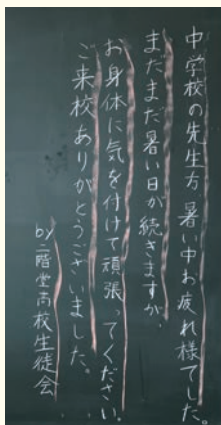 中学校の先生方 暑い中お疲れ様でした。
まだまだ暑い日が続きますが、
お身体に気を付けて頑張ってください。
ご来校ありがとうございました。
by二階堂高校生徒会